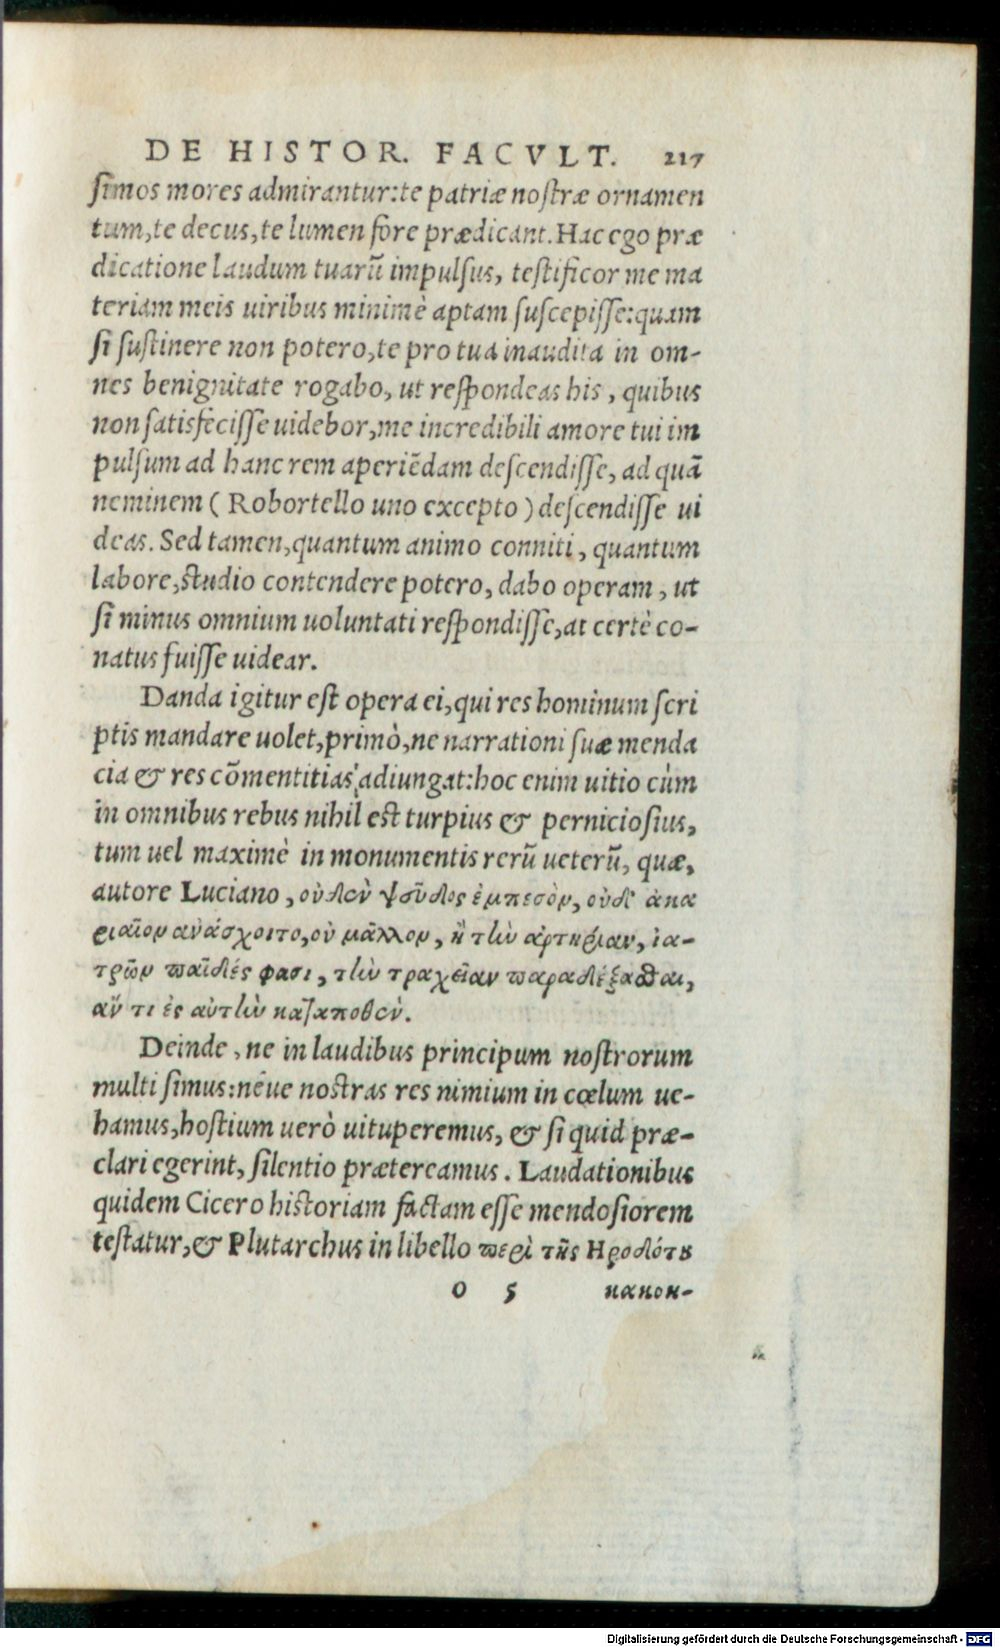 DE HISTOR. FACVLT. 217
ſimos mores admirantur:te patriæ noſtræ ornamen
tum,te decus,te lumen fore prædicant.Hac ego præ
dicatione laudum tuarū impulſus, teſtificor me ma
teriam meis uiribus minimè aptam ſuſcepiſſe:quam
ſi ſuſtinere non potero,te pro tua inaudita in om-
nes benignitate rogabo, ut reſpondeas his, quibus
non ſatisfeciſſe uidebor,me incredibili amore tui im
pulſum ad hanc rem aperiēdam deſcendiſſe, ad quā
neminem ( Robortello uno excepto ) deſcendiſſe ui
deas. Sed tamen,quantum animo conniti, quantum
labore,ſtudio contendere potero, dabo operam, ut
ſi minus omnium uoluntati reſpondiſſe,at certè co-
natus fuiſſe uidear.
Danda igitur eſt opera ei,qui res hominum ſcri
ptis mandare uolet,primò,ne narrationi ſuæ menda
cia & res cōmentitias adiungat:hoc enim uitio cùm
in omnibus rebus nihil eſt turpius & pernicioſius,
tum uel maximè in monumentis rerū ueterū, quæ,
autore Luciano, οὐδὲν ψεῦδος ἐμπεσὸν, οὐδ' ἀκα
ριαῖον ἀνάσχοιτο,οὐ μᾶλλον, ἢ τὴν ἀρτηρίαν, ἰα-
τρῶν παῖδές φασι, τὴν τραχεῖαν παραδέξασθαι,
ἄν τι ἐς αὐτὴν καταποθέν.
Deinde, ne in laudibus principum noſtrorum
multi ſimus:néue noſtras res nimium in cœlum ue-
hamus,hoſtium uerò uituperemus, & ſi quid præ-
clari egerint, ſilentio prætereamus. Laudationibus
quidem Cicero hiſtoriam factam eſſe mendoſiorem
teſtatur,& Plutarchus in libello περὶ τῆς Ηροδότȣ
O 5 κακοη-
Digitalisierung gefördert durch die Deutsche Forschungsgemeinschaft - DFG